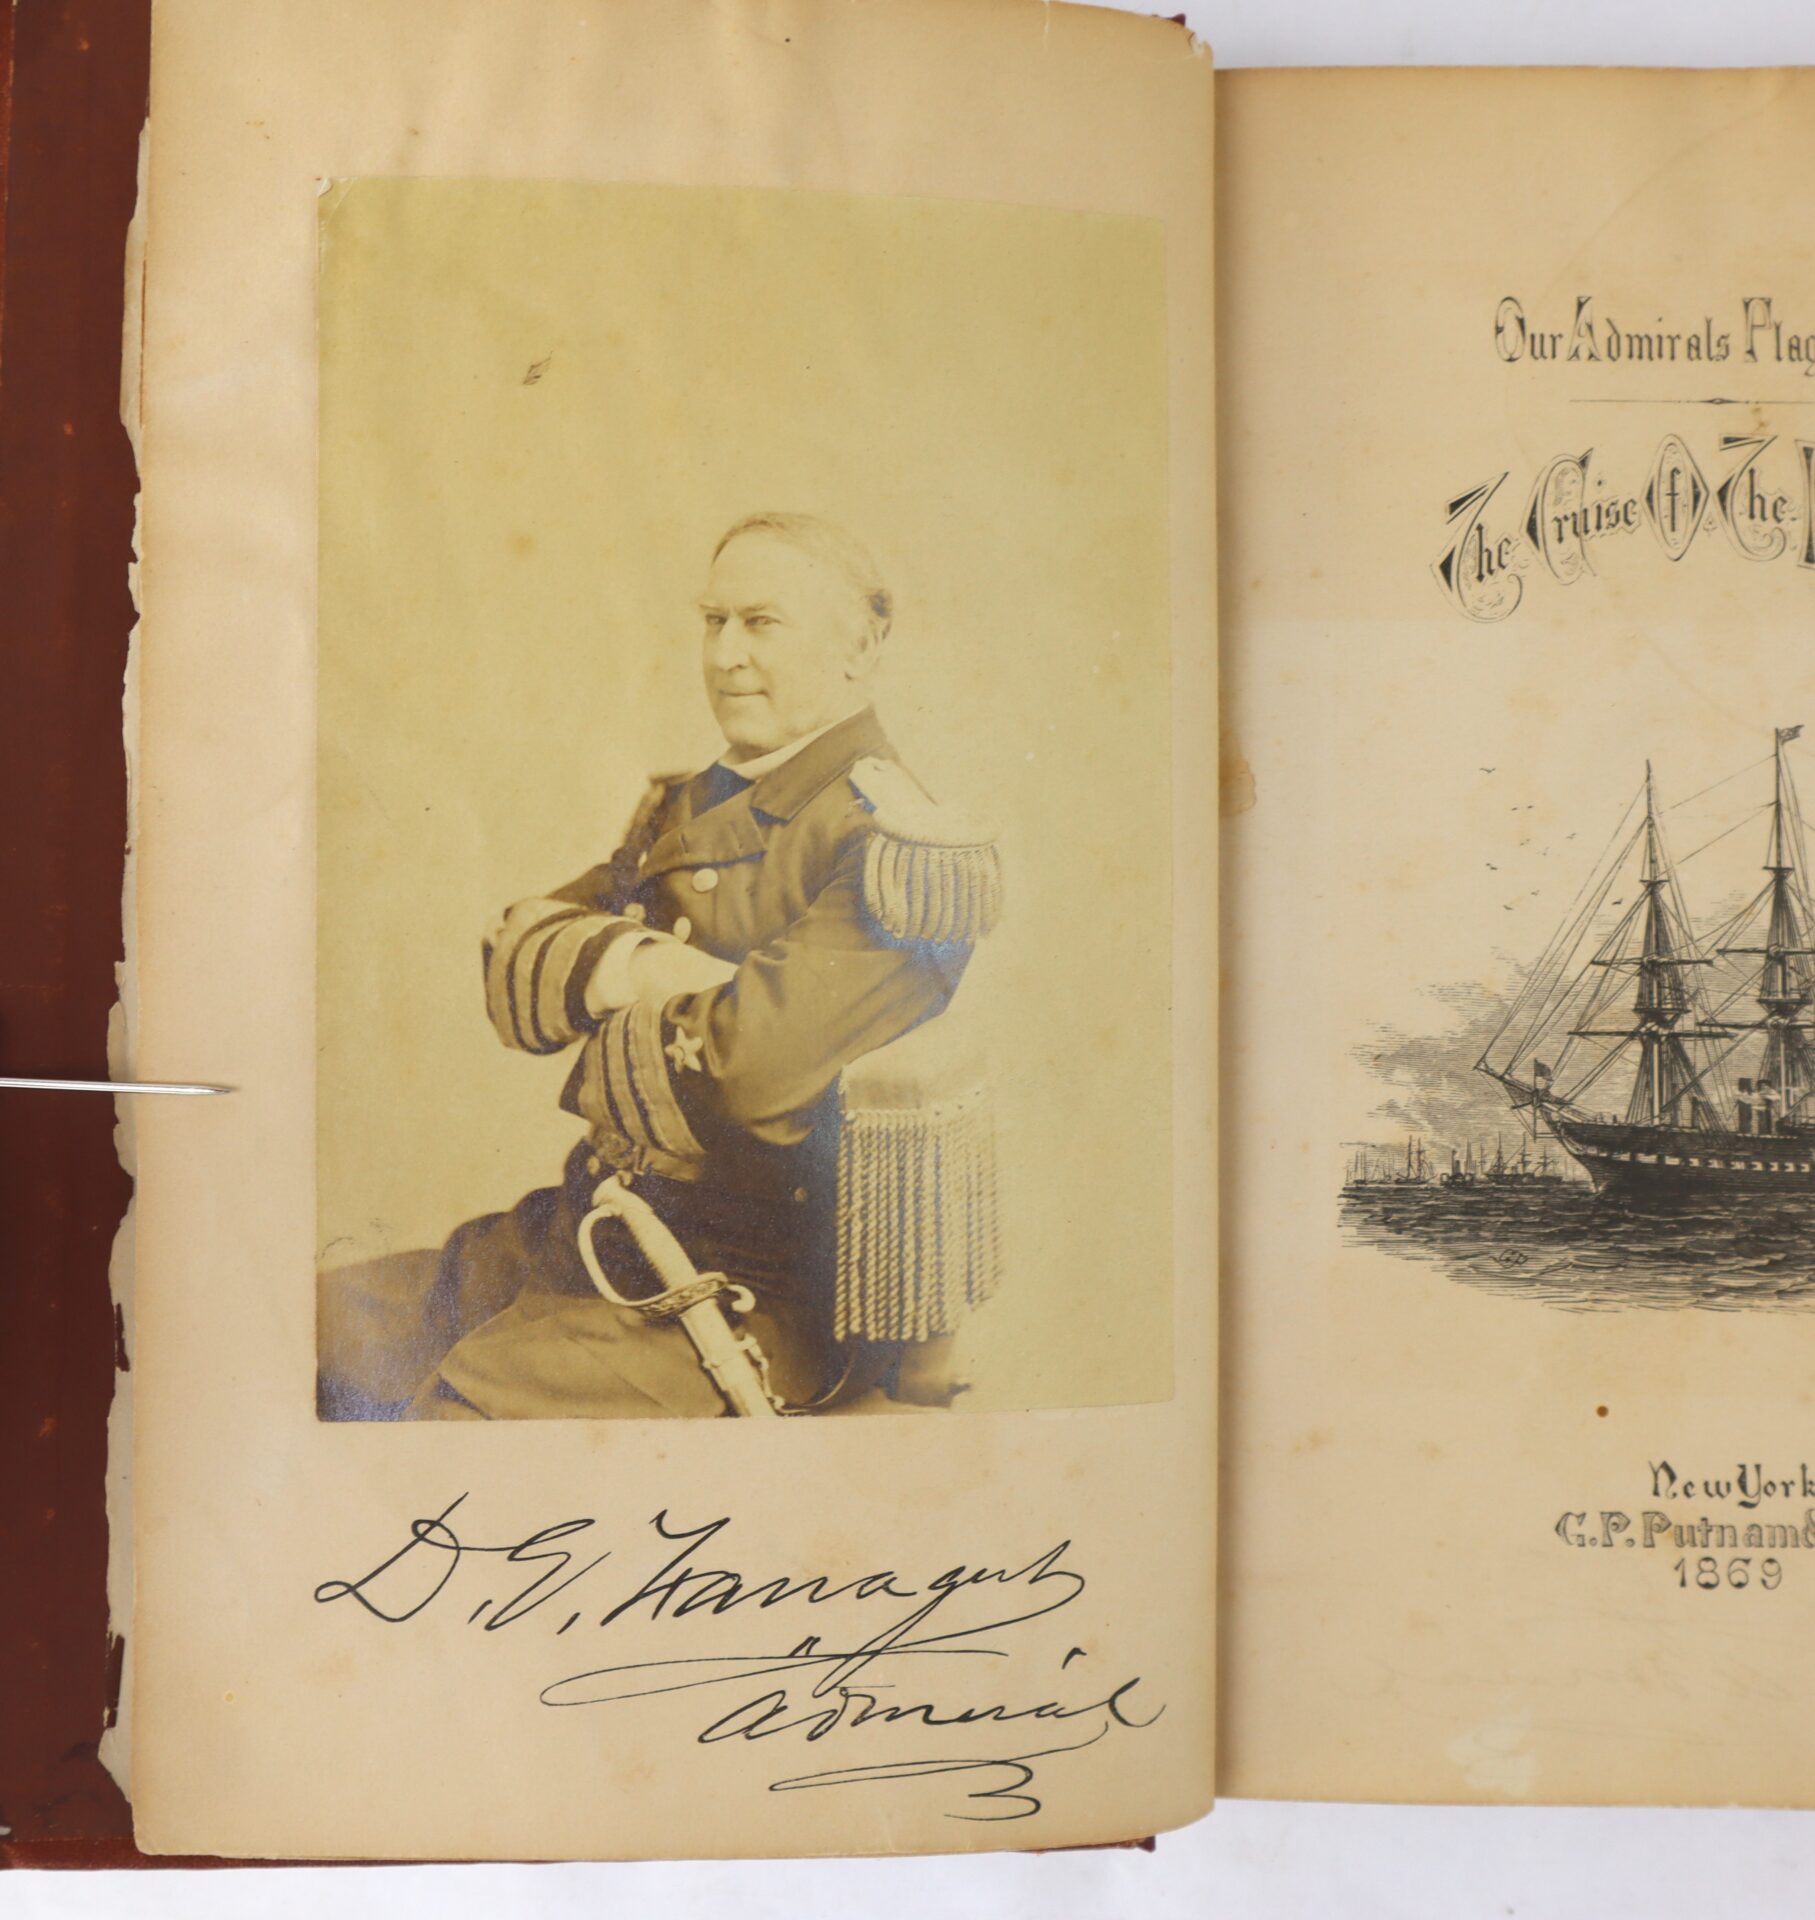 D. G. Farragut
Admiral
Our Admirals Flag
The Cruise Of The
New York
G. P. Putnam &
1869